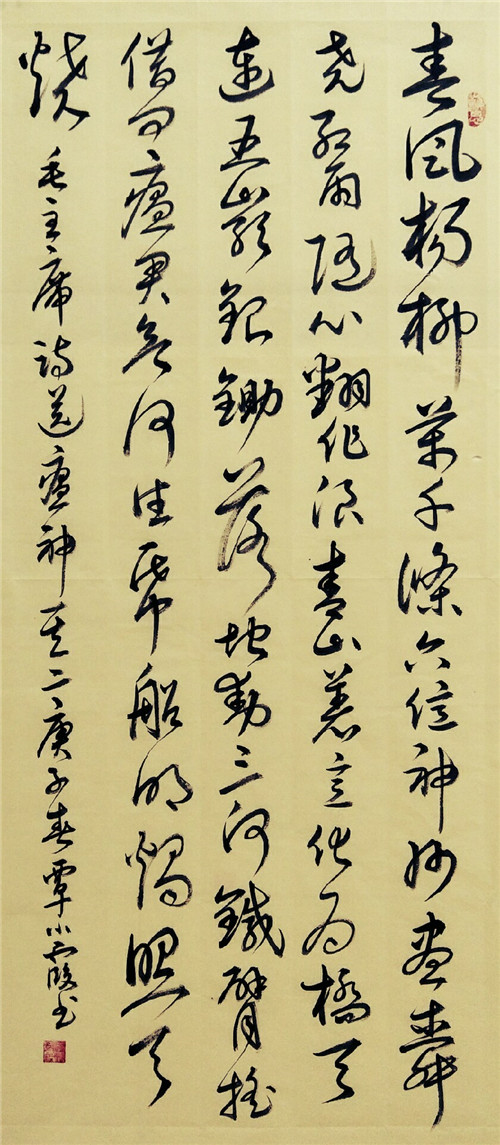 春风杨柳萬千條六億神州盡舜
尧红雨随心翻作浪青山着意化为橋天
连五嶺银鋤落地動三河鐵臂摇
借问瘟君欲何往帋船明燭照天
烧 毛主席诗送瘟神其二庚子春覃小霞书